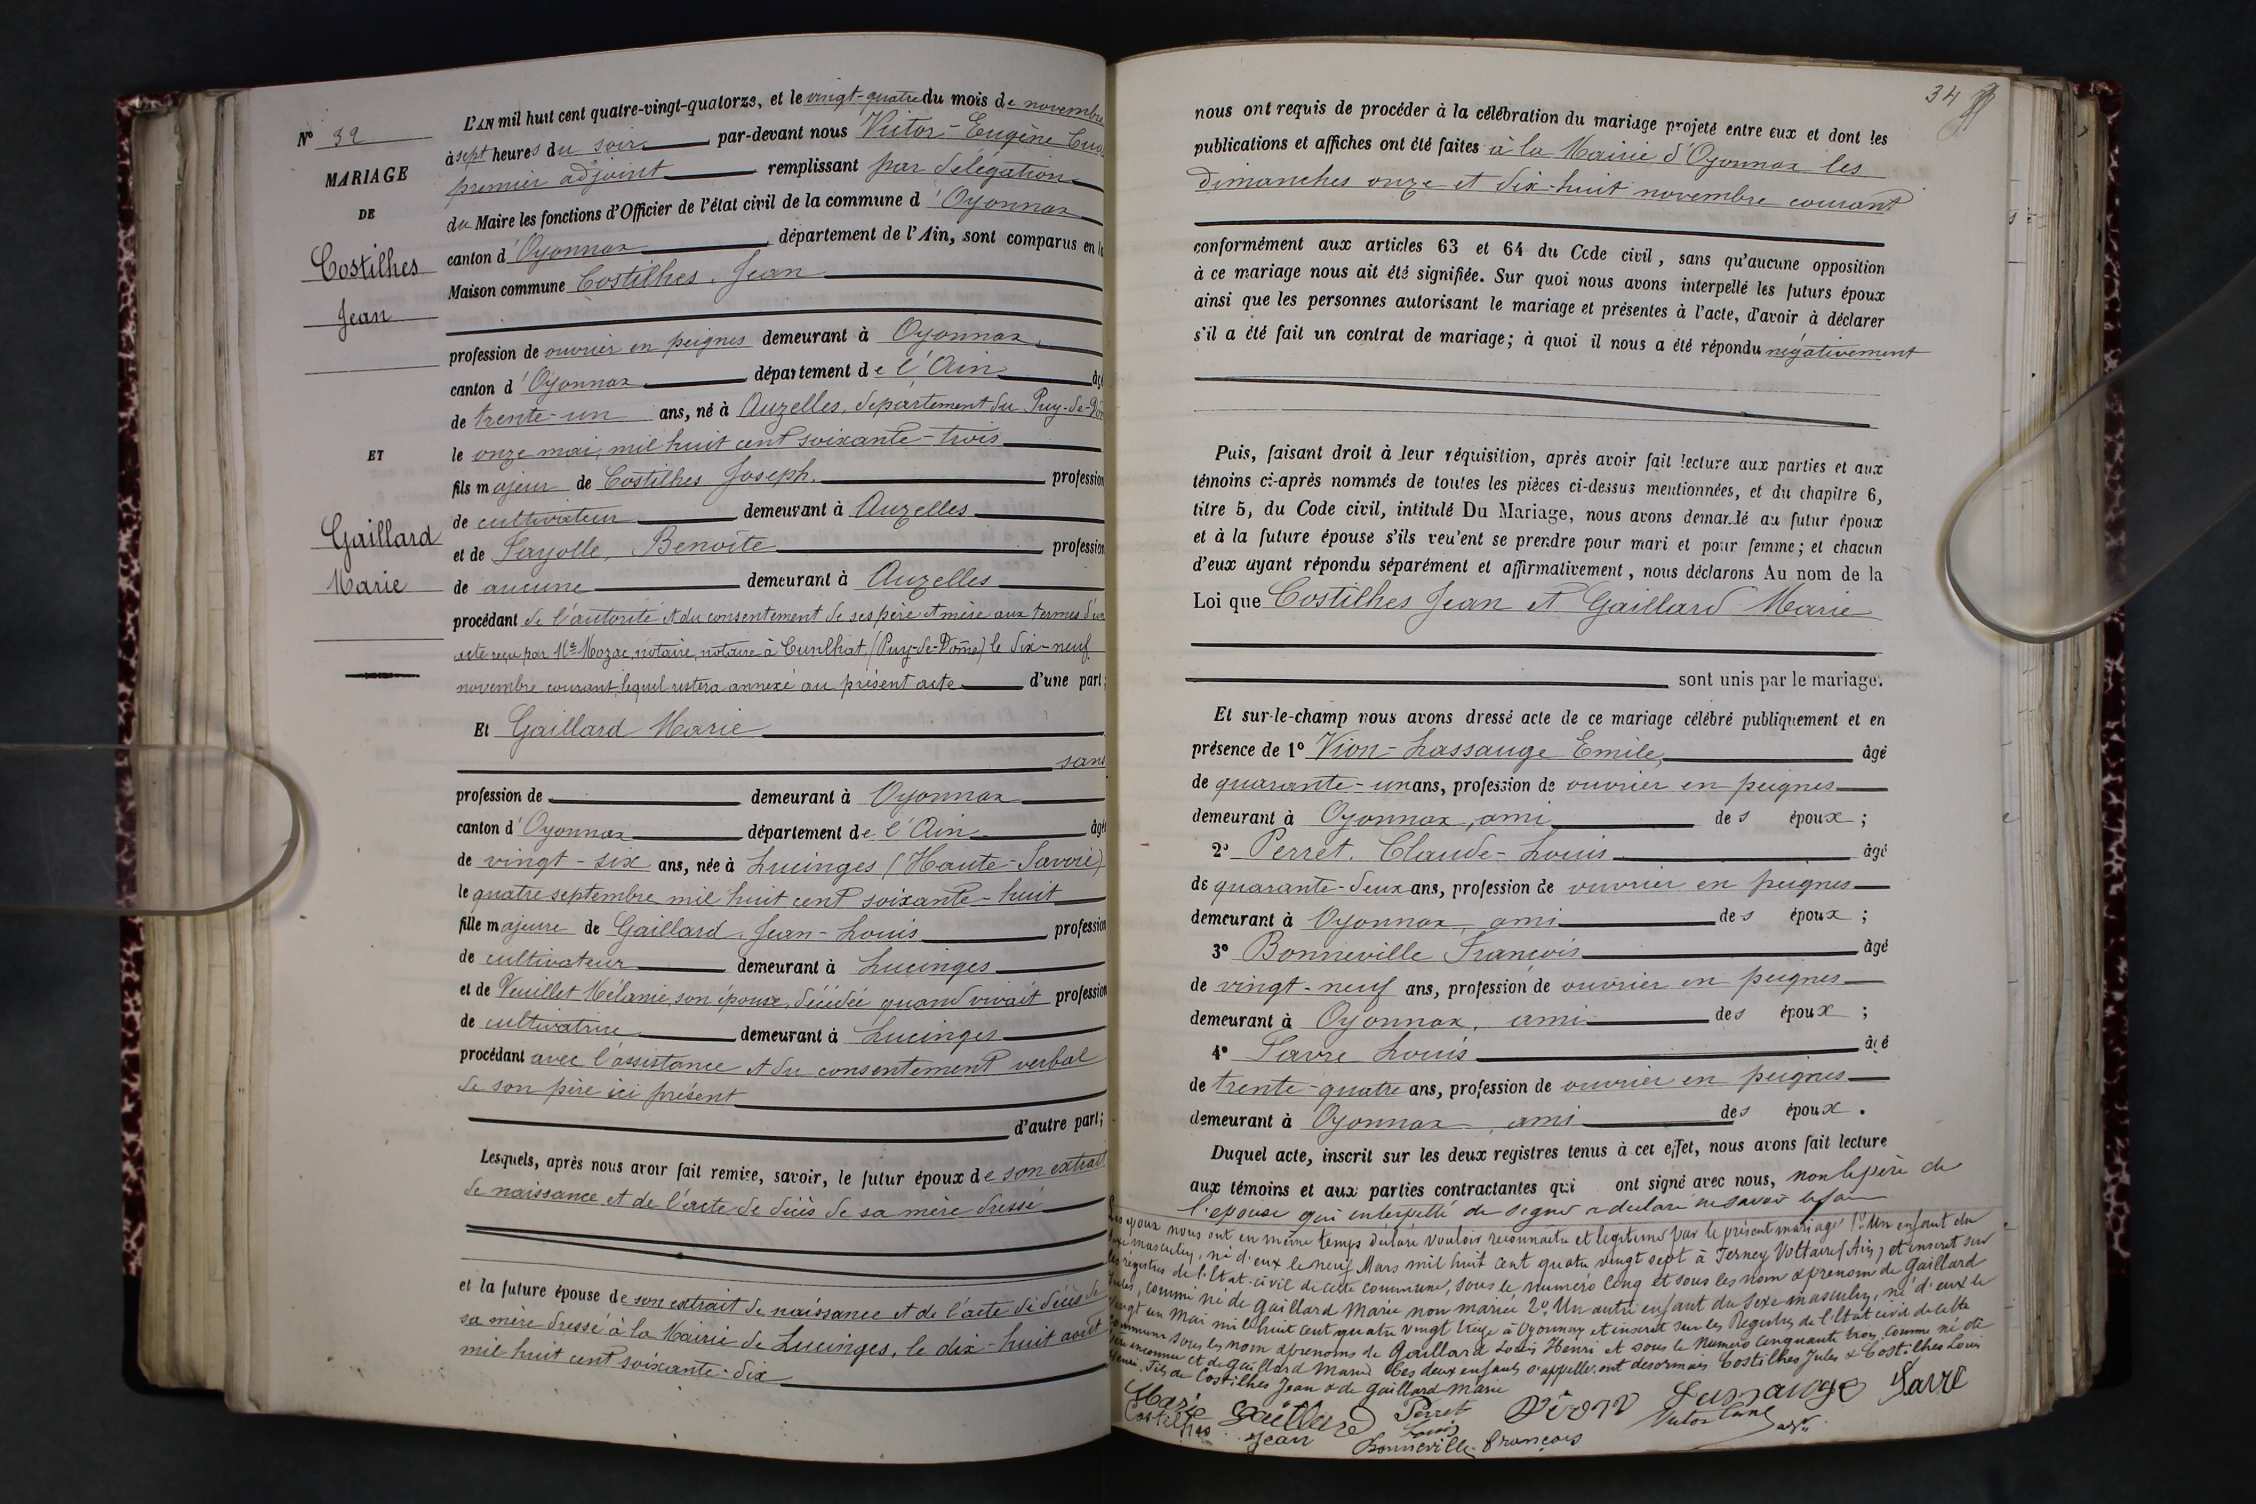 N° 32
MARIAGE
DE
Costilhes
Jean
ET
Gaillard
Marie
L'AN mil huit cent quatre-vingt-quatorze, et le vingt-quatre du mois de novembre
à sept heures du soir par-devant nous Victor-Eugène
premier adjoint remplissant par délégation
du Maire les fonctions d'Officier de l'état civil de la commune d'Oyonnax
canton d'Oyonnax département de l'Ain, sont comparus en la
Maison commune Costilhes, Jean
profession de ouvrier en peignes demeurant à Oyonnax,
canton d'Oyonnax département de l'Ain âgé
de trente-un ans, né à Auzelles, département du Puy-de-Dôme
le onze mai, mil huit cent soixante-trois
fils majeur de Costilhes Joseph, profession
de cultivateur demeurant à Auzelles
et de Fayolle, Benoîte profession
de aucune demeurant à Auzelles
procédant de l'autorité et du consentement de ses père et mère aux termes d'un
acte reçu par Me Mozac, notaire, notaire à Cunlhat (Puy-de-Dôme) le dix-neuf
novembre courant, lequel restera annexé au présent acte d'une part;
Et Gaillard Marie
sans
profession de demeurant à Oyonnax
canton d'Oyonnax département de l'Ain âgée
de vingt-six ans, née à Lucinges (Haute-Savoie)
le quatre septembre mil huit cent soixante-huit
fille majeure de Gaillard, Jean-Louis profession
de cultivateur demeurant à Lucinges
et de Veuillet Mélanie, son épouse, décédée quand vivait profession
de cultivatrice demeurant à Lucinges
procédant avec l'assistance et du consentement verbal
de son père ici présent
d'autre part;
Lesquels, après nous avoir fait remise, savoir, le futur époux de son extrait
de naissance et de l'acte de décès de sa mère dressé
et la future épouse de son extrait de naissance et de l'acte de décès de
sa mère dressé à la Mairie de Lucinges, le dix-huit août
mil huit cent soixante-dix
34
nous ont requis de procéder à la célébration du mariage projeté entre eux et dont les
publications et affiches ont été faites à la Mairie d'Oyonnax les
dimanches onze et dix-huit novembre courant
conformément aux articles 63 et 64 du Code civil, sans qu'aucune opposition
à ce mariage nous ait été signifiée. Sur quoi nous avons interpellé les futurs époux
ainsi que les personnes autorisant le mariage et présentes à l'acte, d'avoir à déclarer
s'il a été fait un contrat de mariage; à quoi il nous a été répondu négativement
Puis, faisant droit à leur réquisition, après avoir fait lecture aux parties et aux
témoins ci-après nommés de toutes les pièces ci-dessus mentionnées, et du chapitre 6,
titre 5, du Code civil, intitulé Du Mariage, nous avons demandé au futur époux
et à la future épouse s'ils veulent se prendre pour mari et pour femme; et chacun
d'eux ayant répondu séparément et affirmativement, nous déclarons Au nom de la
Loi que Costilhes Jean et Gaillard Marie
sont unis par le mariage.
Et sur-le-champ nous avons dressé acte de ce mariage célébré publiquement et en
présence de 1° Vion-Lassauge Emile, âgé
de quarante-un ans, profession de ouvrier en peignes
demeurant à Oyonnax, ami des époux;
2° Perret, Claude-Louis âgé
de quarante-deux ans, profession de ouvrier en peignes
demeurant à Oyonnax, ami des époux;
3° Bonneville François âgé
de vingt-neuf ans, profession de ouvrier en peignes
demeurant à Oyonnax, ami des époux;
4° Favre Louis âgé
de trente-quatre ans, profession de ouvrier en peignes
demeurant à Oyonnax, ami des époux.
Duquel acte, inscrit sur les deux registres tenus à cet effet, nous avons fait lecture
aux témoins et aux parties contractantes qui ont signé avec nous, non le père de
l'épouse qui interpellé de signer a déclaré ne savoir le faire
Les époux nous ont en même temps déclaré vouloir reconnaitre et légitimer par le présent mariage 1° Un enfant du
sexe masculin, né d'eux le neuf Mars mil huit cent quatre vingt sept à Ferney Voltaire (Ain) et inscrit sur
les registres de l'Etat-civil de cette commune, sous le numéro cinq et sous les nom & prénom de Gaillard
Jules, comme né de Gaillard Marie non mariée 2° Un autre enfant du sexe masculin, né d'eux le
vingt un Mai mil huit cent quatre vingt treize à Oyonnax et inscrit sur les Registres de l'Etat civil de cette
commune sous les nom & prénoms de Gaillard Louis Henri et sous le Numéro cinquante trois, comme né de
père inconnu et de Gaillard Marie Ces deux enfants s'appelleront désormais Costilhes Jules & Costilhes Louis
Henri, fils de Costilhes Jean & de Gaillard Marie
Marie Gaillard Perret Vion Lassauge Favre
Costilhes Jean Louis
Bonneville François